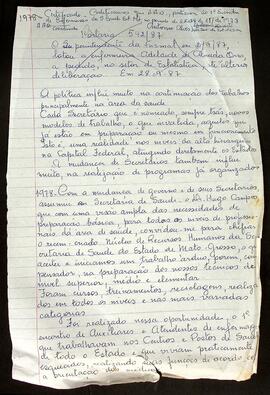 1978 - Certificado - Certificamos que
Portaria 542/87
O Superintendente da Fusmat, em
lotar, a enfermeira Adelaide de Almeida Orro,
a pedido, no setor de Estatística, até ulterior
deliberação. Em 28.09.87
A política influi muito na continuação dos trabalhos
principalmente na área da saúde
Cada Secretário que é nomeado, sempre traz, novos
modelos de trabalho, o que invalida, aqueles que
já estão em preparação ou mesmo em funcionamento
Isto é, uma realidade nos níveis da alta hierarquia
na Capital Federal, atingindo diretamente os Estados
A mudança de Secretários também influi
muito, na realização de programas já organizados
1978 - Com a mudança de governo e de seus Secretários,
assumiu a Secretaria de Saúde - o Dr. Hugo
que com uma visão ampla das necessidades de
preparação básica, para todos os níveis de profissio-
nais da área de saúde, convidou-me para chefiar
o recém criado Núcleo de Recursos Humanos da Se-
cretaria de Saúde do Estado de Mato Grosso, o que
aceitei e iniciamos um trabalho árduo, porém, com-
pensador, na preparação dos nossos técnicos de
nível superior, médio e elementar.
Foram cursos, treinamentos, reciclagens, realiza-
dos em todos os níveis e nas mais variadas
categorias
Foi realizado nessa oportunidade, o 1º
encontro de Auxiliares e Atendentes de enferma-
gem que trabalhavam nos Centros e Postos de Saúde
de todo o Estado e que viviam praticamente
esquecidos, realizando suas funções de acordo
a orientação dos médicos